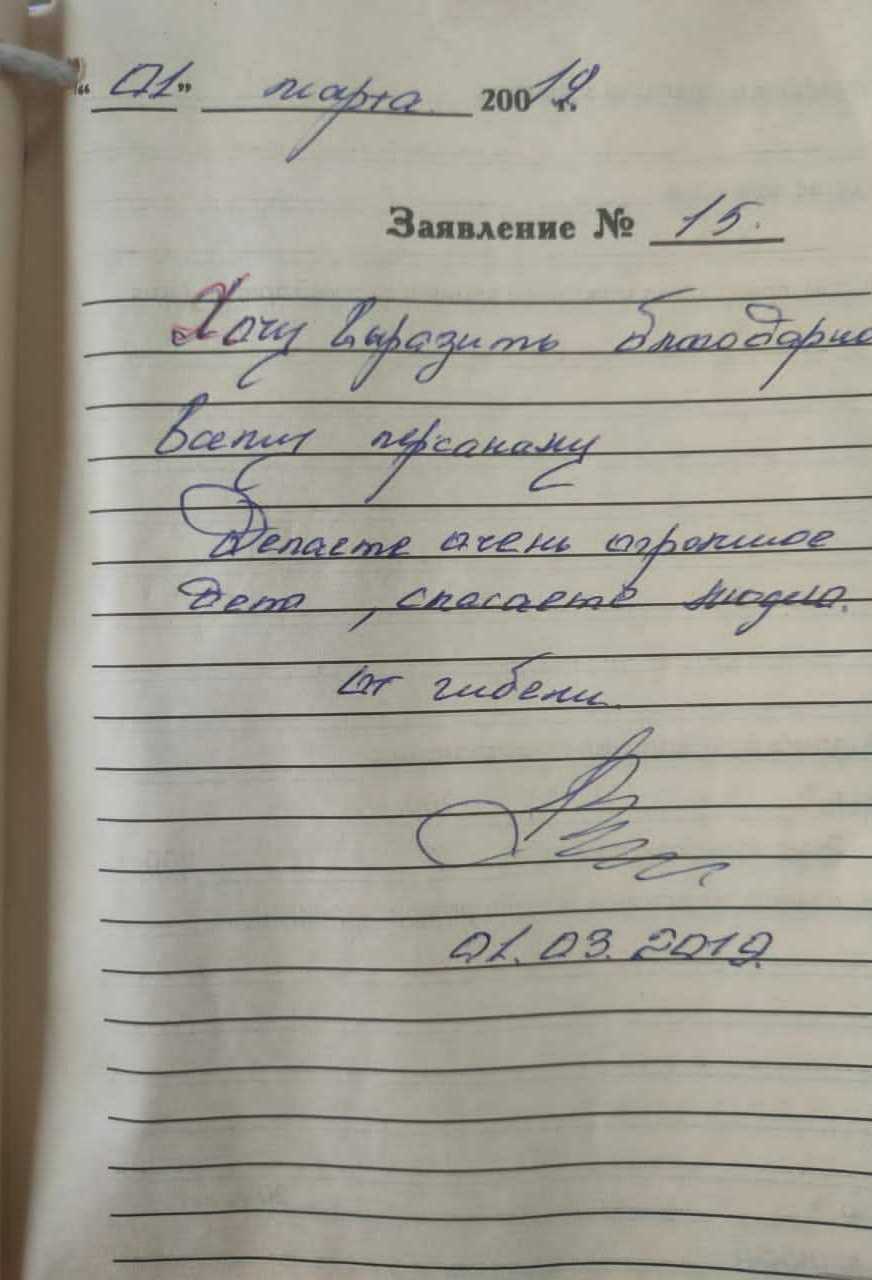 „01” марта 20019 г.
Заявление № 15.
Хочу выразить благодарно
всему персаналу
Делаете очень огромное
дело, спасаете людей.
от гибели
01.03.2019.